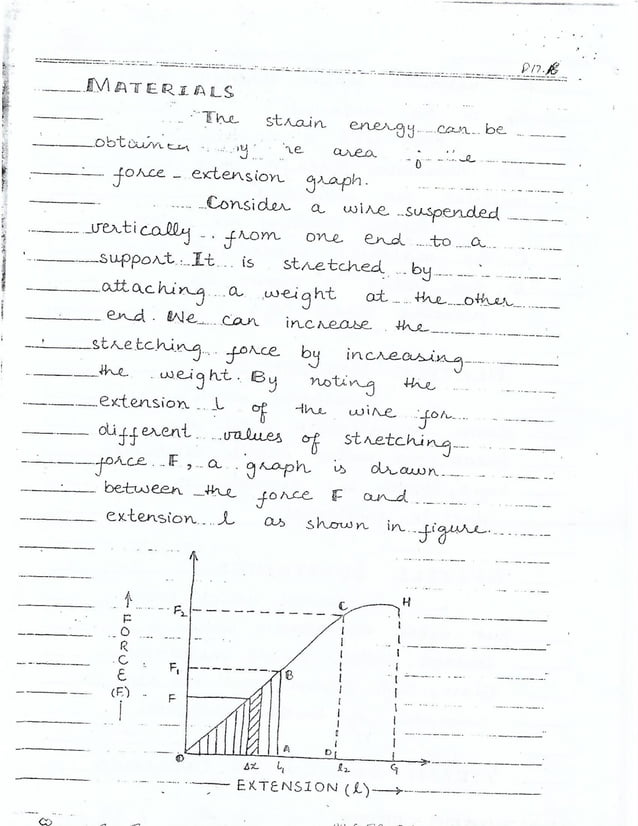 P17.
MATERIALS
The strain energy can be
the area of the
force - extension graph.
Consider a wire suspended
vertically from one end to a
support. It is stretched by
attaching a weight at the other
end. We can increase the
stretching force by increasing
the weight. By noting the
extension l of the wire for
different values of stretching
force F, a graph is drawn
between the force F and
extension l as shown in figure.
C H
F₂
FORCE (F)
F₁ B
F
O Δx A l₁ D l₂ G
EXTENSION (l)